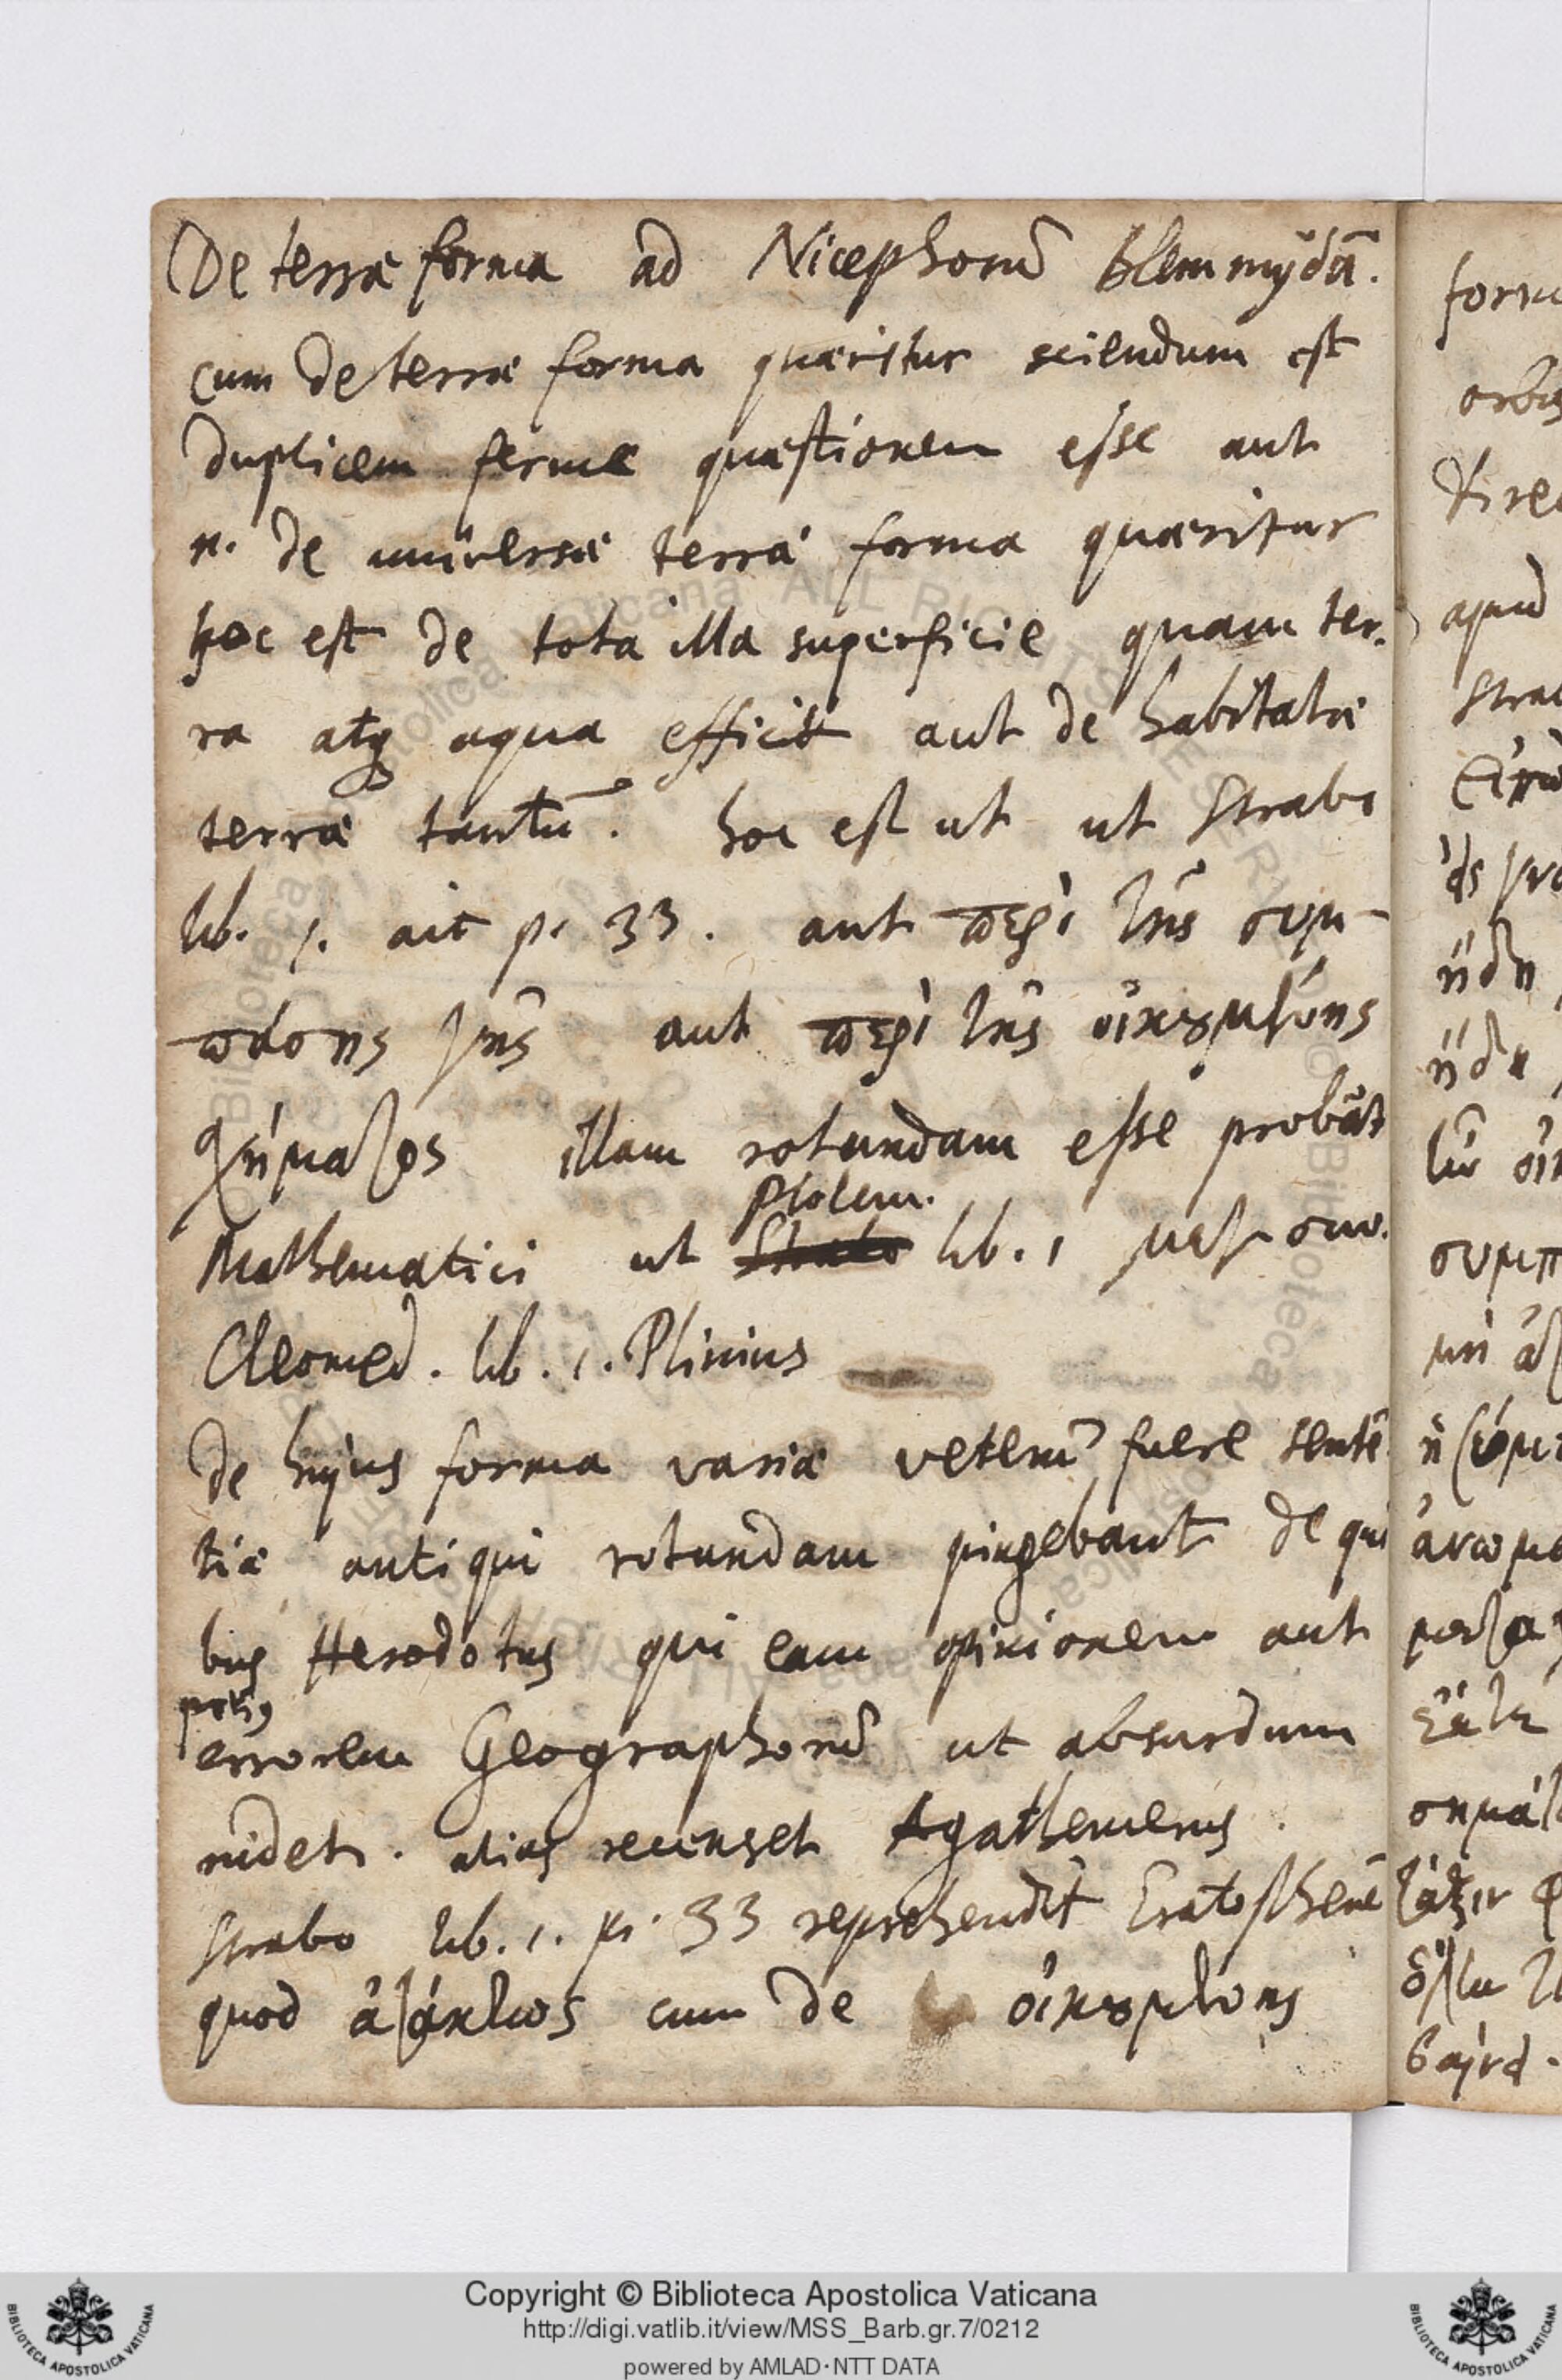 De terræ forma ad Nicephorū blemmydā.
cum de terræ forma quæritur sciendum est
duplicem ferme quæstionem esse aut
n. de universæ terræ forma quæritur
hoc est de tota illa superficie quam ter-
ra atq aqua efficit aut de habitatæ
terræ tantū. hoc est ut ut Strabo
lib. 1. ait p. 33. aut περὶ τῆς συμ-
πάσης γῆς aut περὶ τῆς οἰκουμένης
σχήματος illam rotundam esse probāt
Ptolem.
Mathematici ut lib. 1 μεγ. συν.
Cleomed. lib. 1. Plinius
de hujus forma variæ veterū fuere sentē
tiæ antiqui rotundam pingebant de qui
bus Herodotus qui eam opinionem aut
poti9
errorem Geographorū ut absurdum
ridet. alias recenset Agathemerus.
Strabo lib. 1. p. 33 reprehendit Eratosthenē
quod ἀτάκτως cum de οἰκουμένης
apud
ἤδη
Copyright © Biblioteca Apostolica Vaticana
http://digi.vatlib.it/view/MSS_Barb.gr.7/0212
powered by AMLAD·NTT DATA
BIBLIOTECA APOSTOLICA VATICANA
BIBLIOTECA APOSTOLICA VATICANA